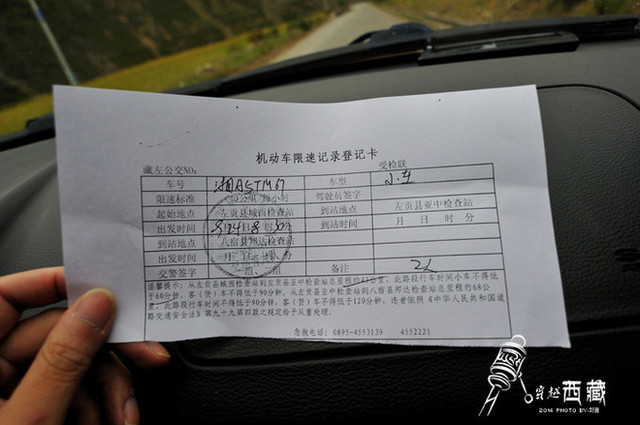 机动车限速记录登记卡
藏左公交NO: 受检联
车号 湘A5TM67 车型 小车
限速标准 公里/每小时 驾驶员签字
起始地点 左贡县城西检查站 到站地点 左贡县亚中检查站
出发时间 到站时间 月 日 时 分
到站地点 八宿县邦达检查站
出发时间
交警签字 组 组 备注 2人
温馨提示:从左贡县城西检查站到左贡县亚中检查站总里程约 公里,此路段行车时间小车不得低
于60分钟,客(货)车不得低于90分钟。从左贡县亚中检查站到八宿县邦达检查站总里程约68公
里,此路段行车时间不得低于90分钟,客(货)车不得低于120分钟,违者依照《中华人民共和国道
路交通安全法》第九十九第四款之规定给予从重处理。
急救电话:0895-4553139 4552221
穿越 西藏
2014 PHOTO BY: